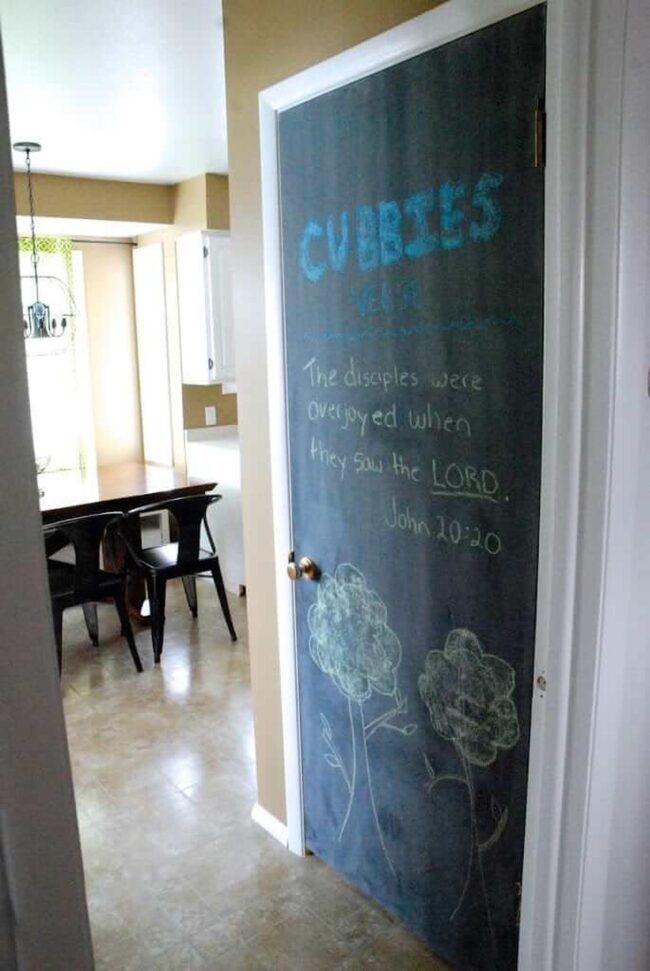 CUBBIES
VERSE
The disciples were
overjoyed when
they saw the LORD.
John 20:20